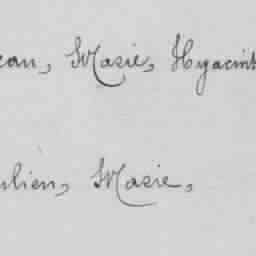 ean, Marie, Hyacint
ulien, Marie,